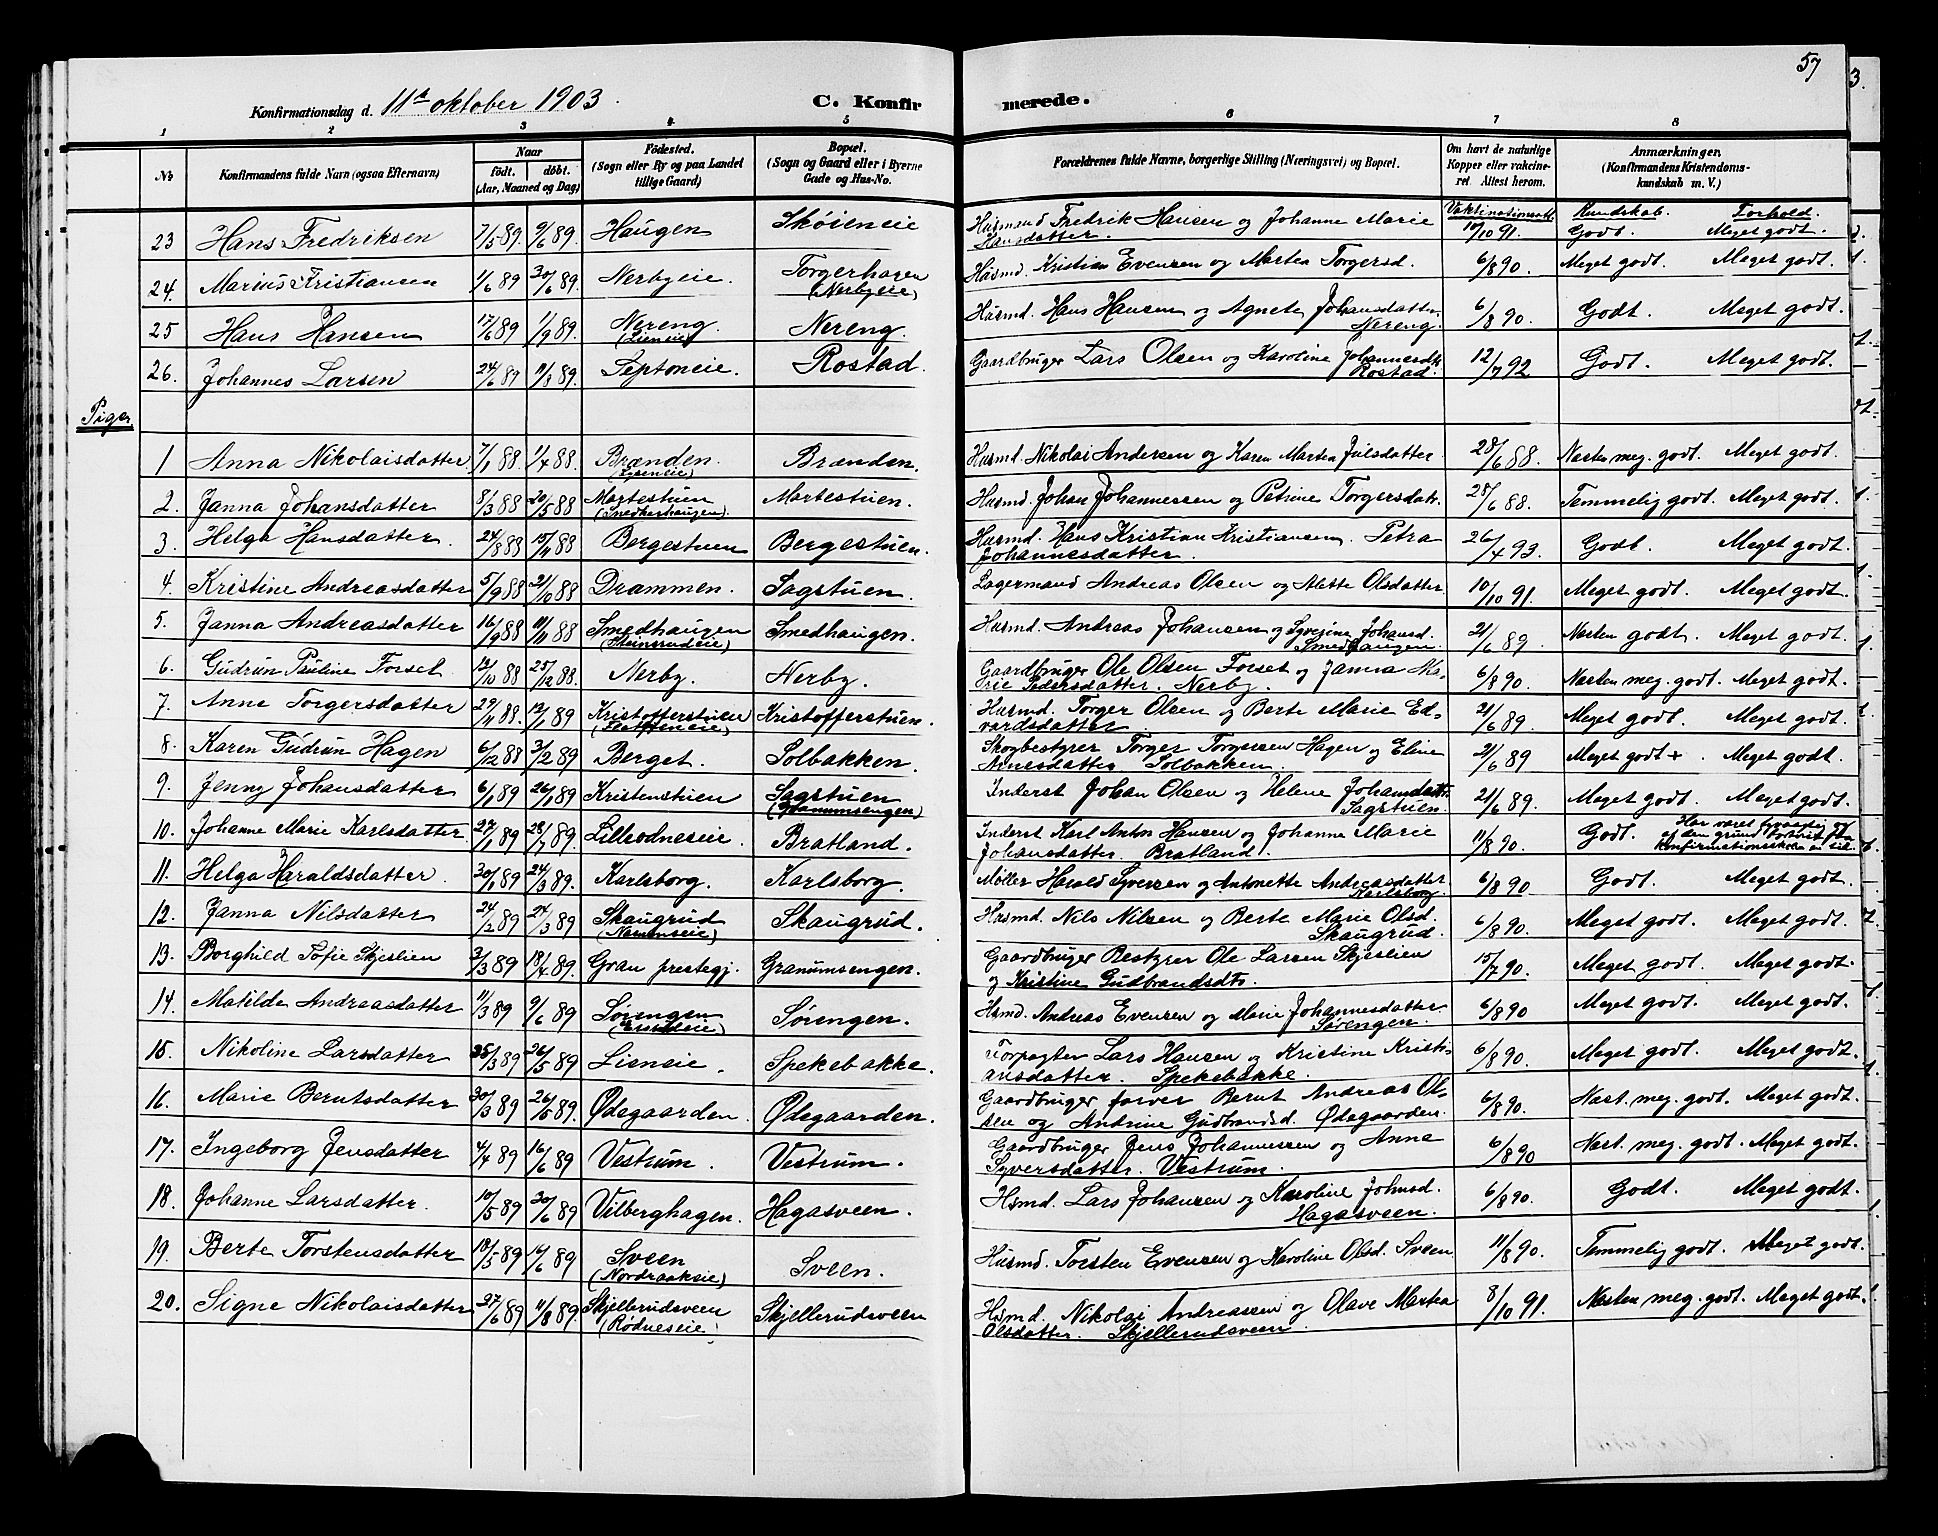 57
3.
Konfirmationsdag d. 11te oktober 1903.
C. Konfirmerede.
1 2 3 4 5 6 7 8
No
Konfirmandens fulde Navn (ogsaa Efternavn)
Naar
født. døbt.
(Aar, Maaned og Dag)
Fødested.
(Sogn eller By og paa Landet
tillige Gaard)
Bopæl.
(Sogn og Gaard eller i Byerne
Gade og Hus-No.
Forældrenes fulde Navne, borgerlige Stilling (Næringsvei) og Bopæl.
Om havt de naturlige
Kopper eller vakcine-
ret. Attest herom.
Anmærkninger.
(Konfirmandens Kristendoms-
kundskab m. V.)
Kundskab. Forhold.
23 Hans Fredriksen 7/5 89. 9/6 89. Haugen Skøieneie Husmand Fredrik Hansen og Johanne Marie
Hansdatter. 10/10 91. Godt. Meget godt.
24. Marius Kristiansen 1/6 89 30/6 89. Nerbyeie. Torgerhagen
(Nerbyeie) Husmd. Kristian Evensen og Martea Torgersd. 6/8 90. Meget godt. Meget godt.
25 Hans Hansen 17/6 89 1/9 89. Nereng.
(Lieneie) Nereng. Husmd. Hans Hansen og Agnete Johansdatter
Nereng. 6/8 90. Godt. Meget godt.
26. Johannes Larsen 24/6 89 11/8 89. Septoneie. Rostad. Gaardbruger Lars Olsen og Karoline Johannesdt.
Rostad. 12/7 92 Godt. Meget godt.
Piger
1 Anna Nikolaisdatter 7/1 88. 1/4 88. Brænden.
Brænden. Husmd. Nikolai Andersen og Karen Martea Julsdatter. 28/6 88. Næsten meg. godt. Meget godt.
2. Janna Johansdatter 8/3 88 20/5 88 Martestuen
(Smedkeshaugen). Martestuen. Husmd. Johan Johannessen og Petrine Torgersdatr. 28/6 88. Temmelig godt. Meget godt.
3. Helga Hansdatter. 24/8 88 15/11 88 Bergestuen Bergestuen. Husmd. Hans Kristian Kristiansen. Petra
Johannesdatter. 26/4 93. Godt. Meget godt.
4. Kristine Andreasdatter 5/9 88 21/10 88 Drammen. Sagstuen. Lagermand Andreas Olsen og Mette Olsdatter. 10/10 91. Meget godt. Meget godt.
5. Janna Andreasdatter 16/9 88 11/11 88 Smedhaugen
Smedhaugen. Husmd. Andreas Johansen og Syverine Johansd.
Smedhaugen. 21/6 89 Næsten godt. Meget godt.
6. Gudrun Pauline Forset 12/10 88 25/12 88. Nerby. Nerby. Gaardbruger Ole Olsen Forset og Janna Ma-
rie Pedersdatter. Nerby. 6/8 90. Næsten meg. godt. Meget godt.
7. Anne Torgersdatter 29/11 88. 13/1 89 Kristofferstuen
Kristofferstuen. Husmd. Torger Olsen og Berte Marie Ed-
vardsdatter 21/6 89. Meget godt. Meget godt.
8. Karen Gudrun Hagen 6/12 88 3/2 89 Berget. Solbakken. Skogbestyrer Torger Torgersen Hagen og Eline
Arnesdatter Solbakken. 21/6 89 Meget godt +. Meget godt.
9. Jenny Johansdatter 6/1 89 26/1 89 Kristenstuen Sagstuen
(Granumsengen) Inderst Johan Olsen og Helene Johansdatter
Sagstuen. 21/6 89. Meget godt. Meget godt.
10. Johanne Marie Karlsdatter 27/1 89 28/7 89. Lillerodneseie. Bratland. Inderst Karl Anton Hansen og Johanne Marie
Johansdatter. Bratland. 11/8 90. Godt. Har været og
af den grund bortvist fra
konfirmationsskolen
11. Helga Haraldsdatter. 30/1 89 24/3 89. Karlsborg. Karlsborg. Møller Harald Syversen og Antonette Andreasdatter
Karlsborg. 6/8 90 Godt. Meget godt.
12. Janna Nilsdatter 24/2 89 24/3 89 Skaugrud
(Næmenseie) Skaugrud. Husmd. Nils Nilsen og Berte Marie Olsd.
Skaugrud. 6/8 90. Meget godt. Meget godt.
13. Borghild Sofie Skjeslien 3/3 89 18/4 89. Gran prestegj. Granumsengen. Gaardbruger Bestyrer Ole Larsen Skjeslien
og Kristine Gudbrandsdt. 15/7 90. Meget godt. Meget godt.
14. Matilde Andreasdatter 11/3 89 9/6 89 Sørengen
Sørengen. Hsmd. Andreas Evensen og Marie Johannesdatter.
Sørengen. 6/8 90 Meget godt. Meget godt.
15. Nikoline Larsdatter 25/3 89 26/5 89 Lieneie. Spekebakke. Forpagter Lars Hansen og Kristine Kristi-
ansdatter. Spekebakke. 6/8 90. Meget godt. Meget godt.
16. Marie Berntsdatter 30/3 89 26/5 89. Ødegaarden. Ødegaarden. Gaardbruger farver Bernt Andreas Ol-
sen og Andrine Gudbrandsd. Ødegaarden. 6/8 90. Næst. meg. godt. Meget godt.
17. Ingeborg Jensdatter 4/4 89 16/6 89 Vestrum. Vestrum. Gaardbruger Jens Johannessen og Anna
Syversdatter. Vestrum. 6/8 90 Næst. meg. godt. Meget godt.
18. Johanne Larsdatter. 10/5 89 30/6 89 Vilberghagen. Hagasveen. Hsmd. Lars Johansen og Karoline Johnsd.
Hagasveen. 6/8 90. Godt. Meget godt.
19. Berte Torstensdatter 18/5 89 16/6 89 Sveen
(Nordraakseie) Sveen. Husmd. Torsten Evensen og Karoline Olsd. Sveen 11/8 90. Temmelig godt. Meget godt.
20. Signe Nikolaisdatter 27/6 89 11/8 89. Skjellerudsveen
(Rødneseie) Skjellerudsveen Hsmd. Nikolai Andreassen og Olave Martea
Olsdatter. Skjellerudsveen. 8/10 91. Næsten meg. godt. Meget godt.